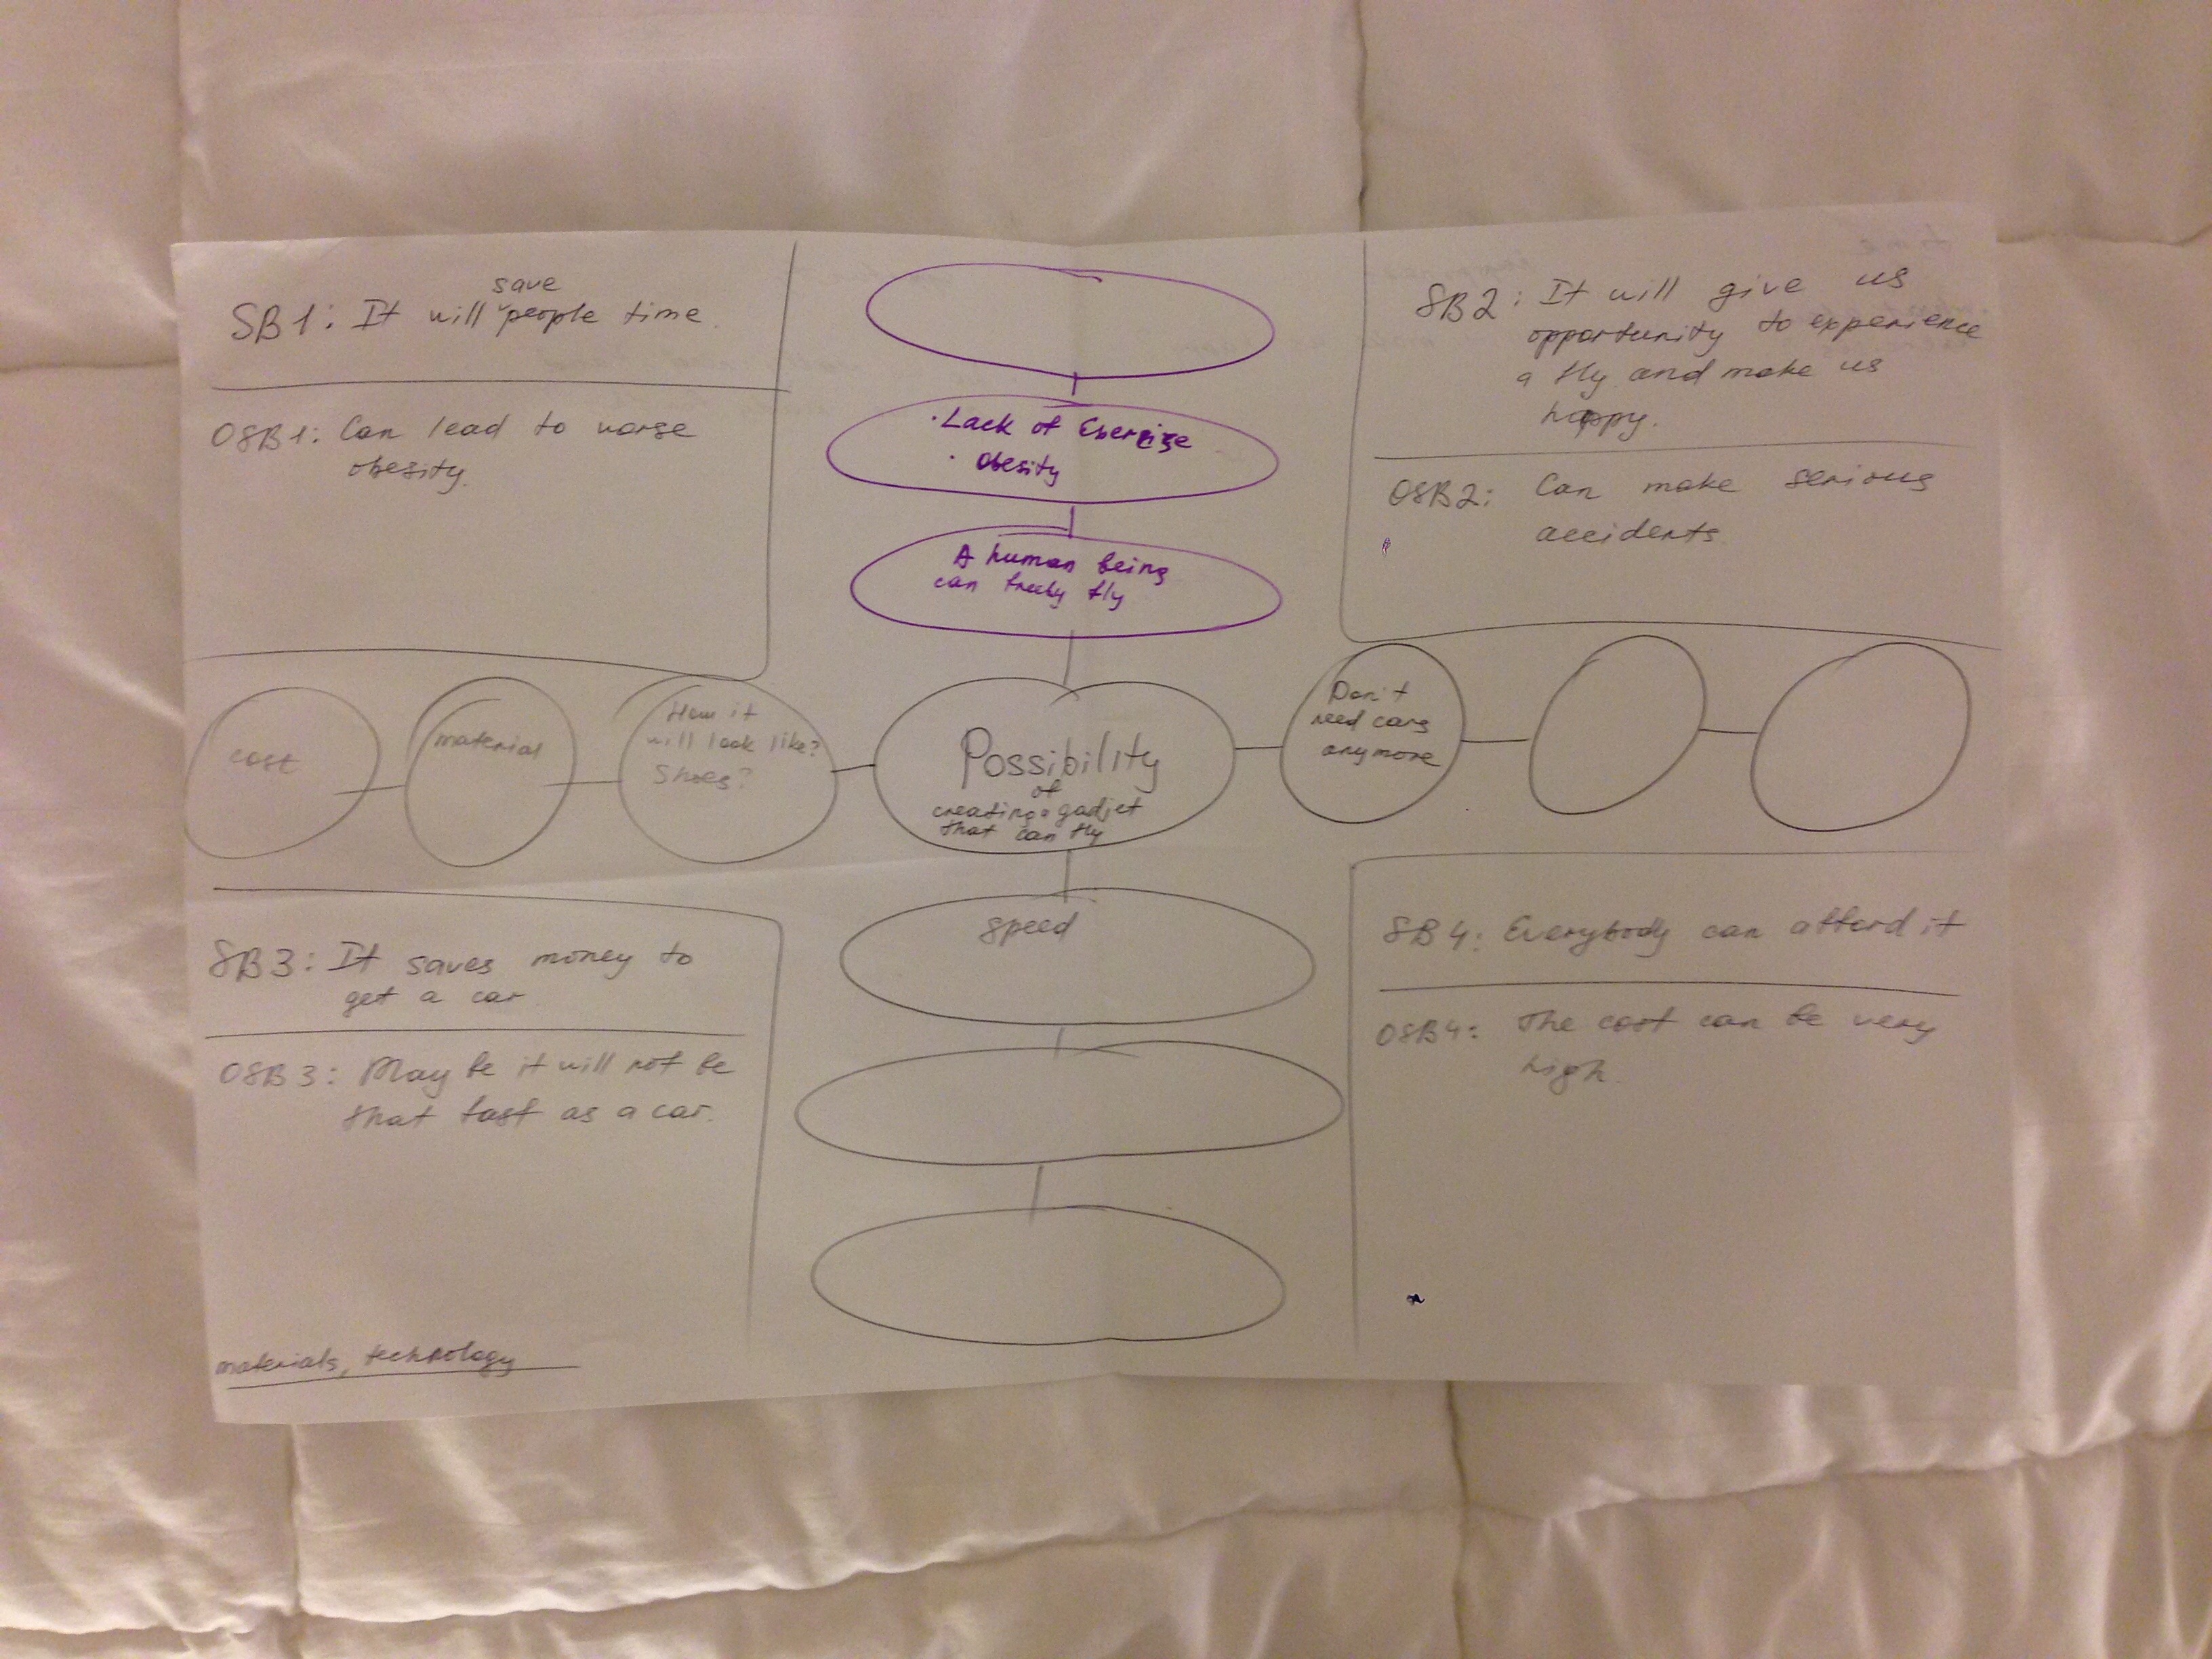 SB1: It will save people time.
OSB1: Can lead to worse
obesity.
• Lack of Exercise
• Obesity
A human being
can freely fly
SB2: It will give us
opportunity to experience
a fly and make us
happy.
OSB2: Can make serious
accidents.
cost
material
How it
will look like?
Shoes?
Possibility
of
creating a gadjet
that can fly
Don't
need cars
anymore
speed
SB3: It saves money to
get a car
OSB3: May be it will not be
that fast as a car.
materials, technology
SB4: Everybody can afford it
OSB4: The cost can be very
high.